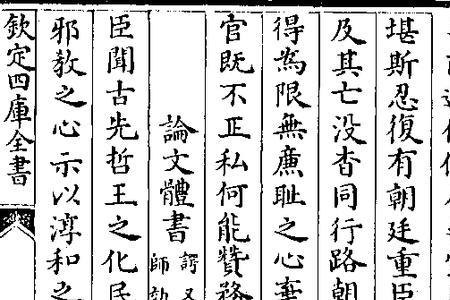 堪斯忍復有朝廷重臣
及其亡没杳同行路朝
得為限無廉耻之心棄
官既不正私何能賛務
論文體書
臣聞古先哲王之化民
邪教之心示以淳和之
欽定四庫全書